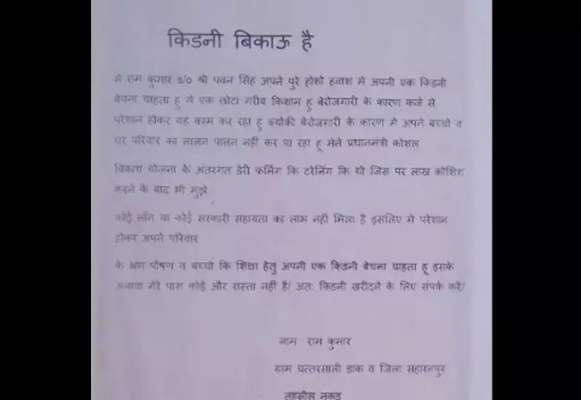 किडनी बिकाऊ है
मे राम कुमार s/o श्री पवन सिंह अपने पुरे होशो हवाश मे अपनी एक किडनी
बेचना चाहता हु मे एक छोटा गरीब किशान हु बेरोजगारी के कारण कर्ज से
परेशान होकर यह काम कर रहा हु क्योकी बेरोजगारी के कारण मे अपने बच्चो व
घर परिवार का लालन पालन नही कर पा रहा हु मेने प्रधानमंत्री कोशल
विकाश योजना के अंतरगत डेरी फर्मिंग कि टरेनिंग कि थी जिस पर लाख कोशिश
करने के बाद भी मुझे
कोई लॉन या कोई सरकारी सहायता का लाभ नही मिला है इसलिए मे परेशान
होकर अपने परिवार
के भ्रण पोषण व बच्चो कि शिक्षा हेतु अपनी एक किडनी बेचना चाहता हू इसके
अलावा मेरे पास कोई और रास्ता नही है/ अतः किडनी खरीदने के लिए संपर्क करे/
नाम राम कुमार
ग्राम चत्तरसाली डाक व जिला सहारनपुर
तहसील नकुड